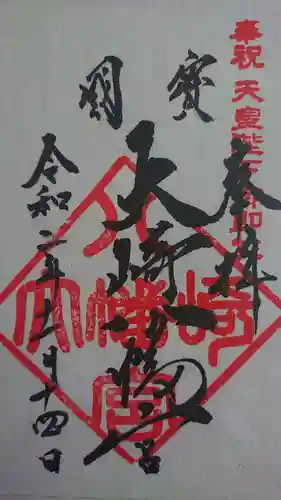 奉祝 天皇陛下御即位
奉拝
寳
明
大崎八幡宮
令和二年正月十四日
大崎八幡宮